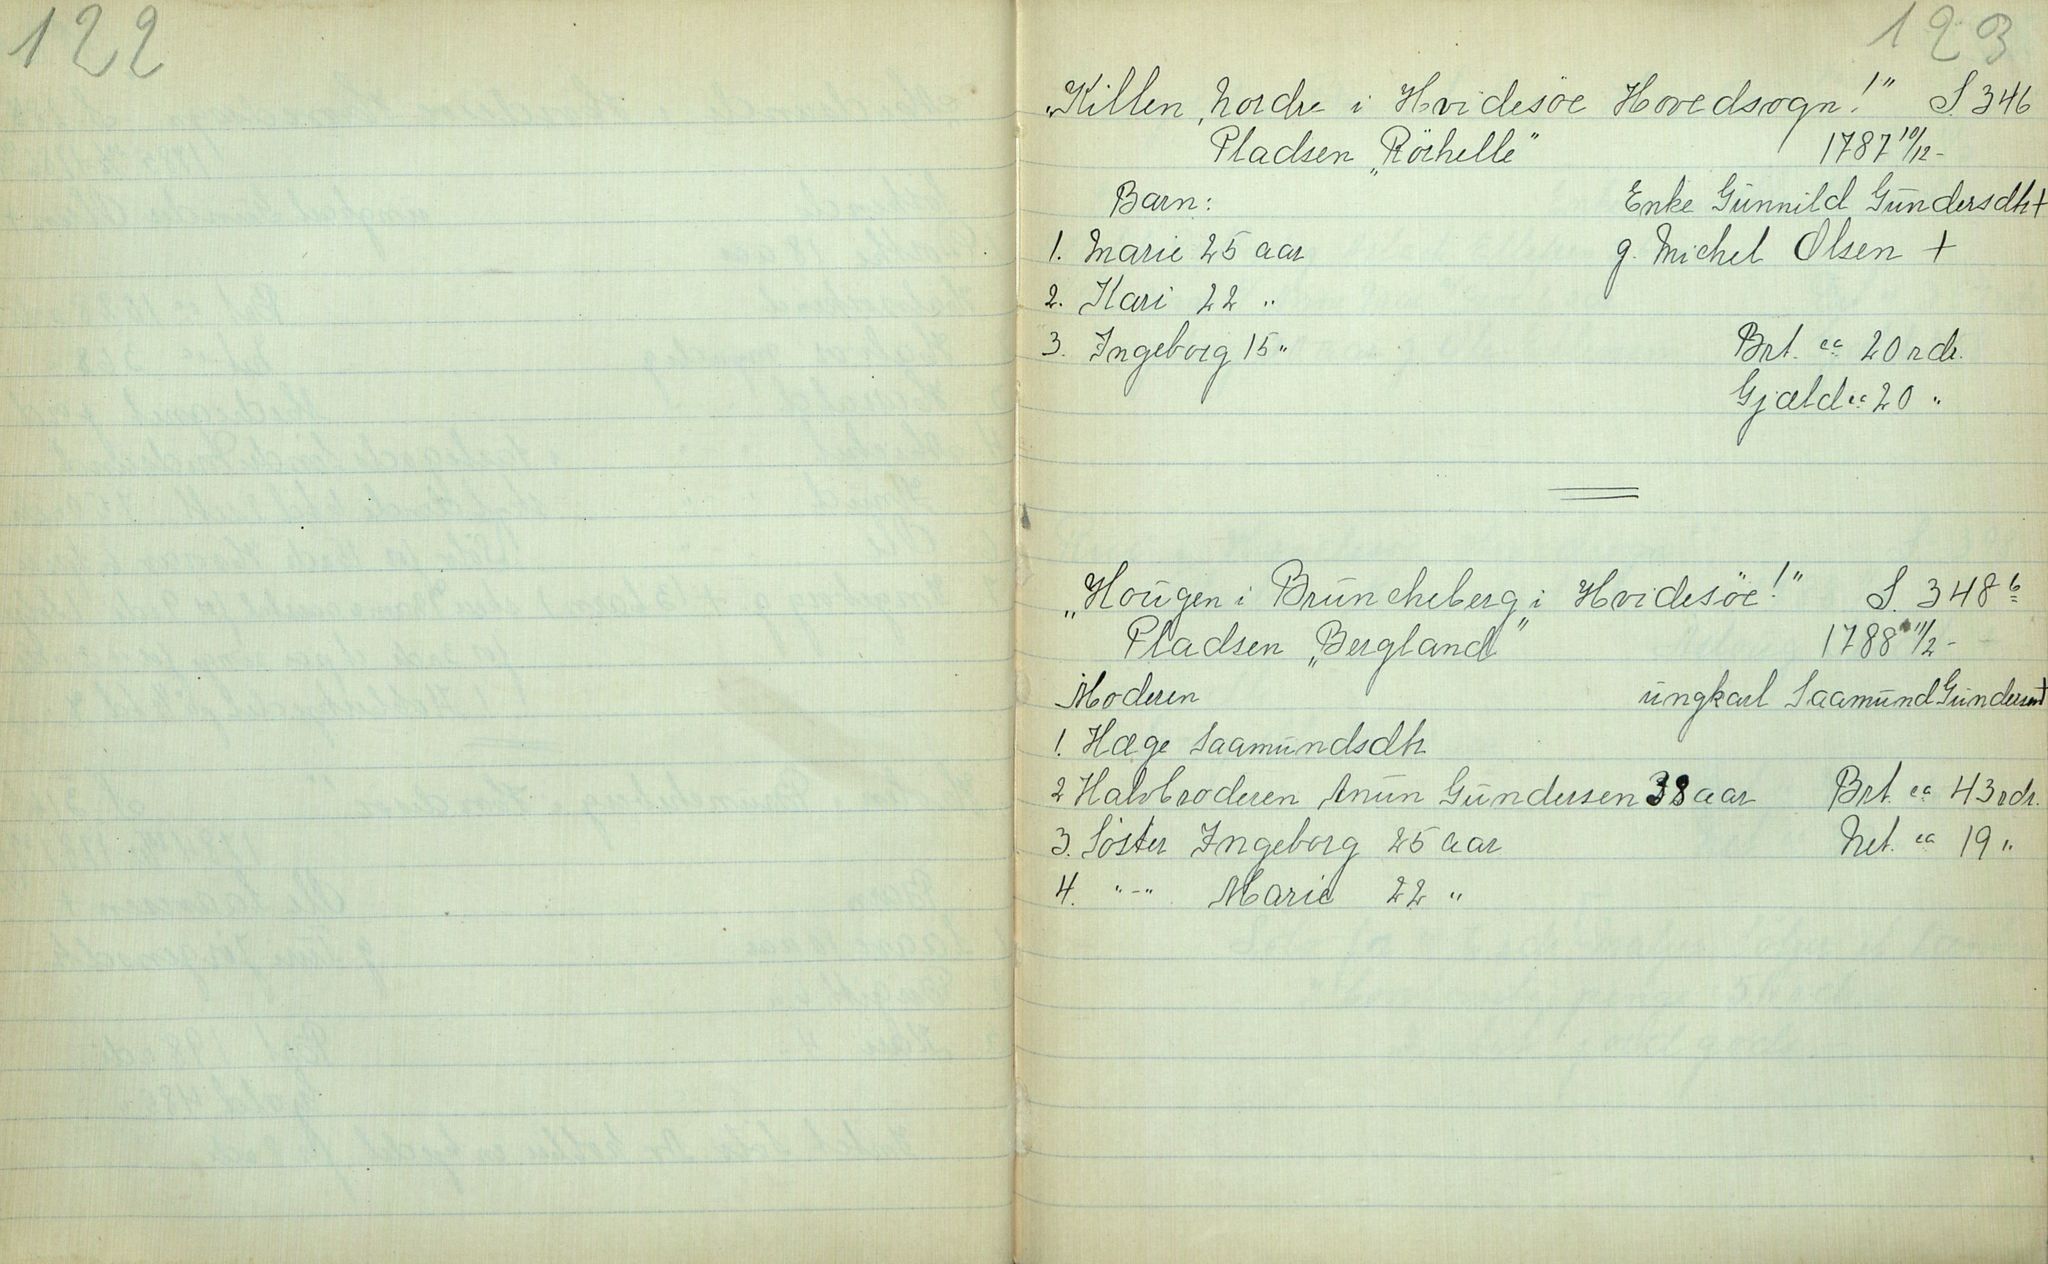 122
123
„Killen, nordre i Hvidesöe Hovedsogn!" S. 346
Pladsen „Röihelle" 1787 10/12 -
Barn: Enke Gŭnnild Gŭndersdtr +
1. Marie 25 aar g. Michel Olsen +
2. Kari 22 "
3. Ingeborg 15 " Brt. ca 20 rdr.
Gjæld ca 20 "
„Hoŭgen i Brŭncheberg, i Hvidesöe!" S. 348 b
Pladsen „Bergland" 1788 11/2 -
Moderen ŭngkarl Saamŭnd Gŭndersen +
1. Hæge Saamŭndsdtr
2 Halvbroderen Anŭn Gŭndersen 38 aar Brt. ca 43 rdr.
3. Söster Ingeborg 25 aar Net. ca 19 "
4. " - " Marie 22 "